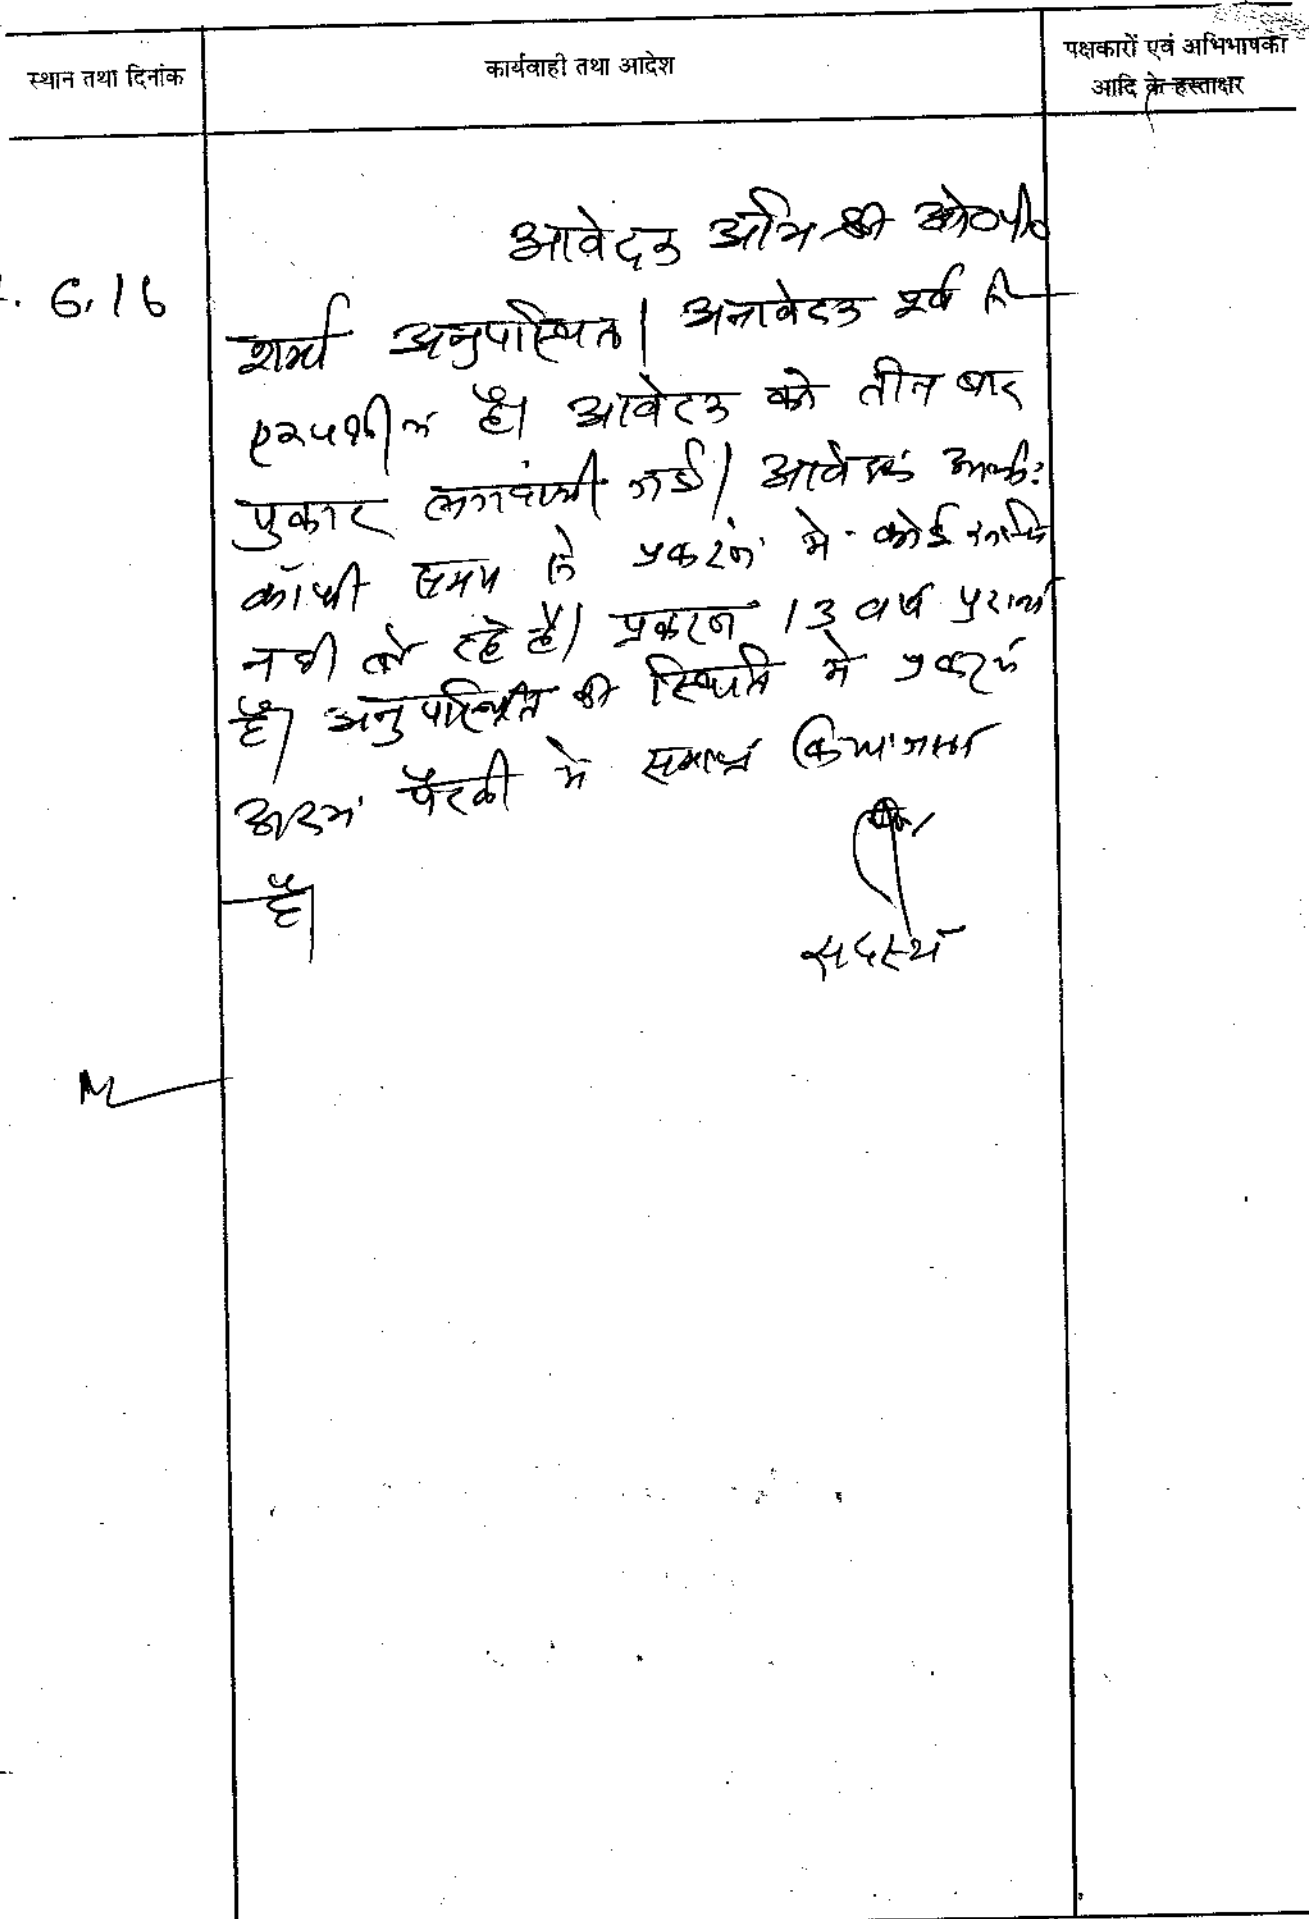 स्थान तथा दिनांक
कार्यवाही तथा आदेश
पक्षकारों एवं अभिभाषकों
आदि के हस्ताक्षर
आवेदक अभि श्री के०पी०
6.16
शर्मा अनुपस्थित। अनावेदक पूर्व से
एकपक्षीय है। आवेदक को तीन बार
पुकार लगवायी गई। आवेदक
काफी समय से प्रकरण में कोई रूचि
नही ले रहे है। प्रकरण 13 वर्ष पुराना
है। अनुपस्थिति की स्थिति मे प्रकरण
अदम पैरवी मे समाप्त किया जाता
है।
सदस्य